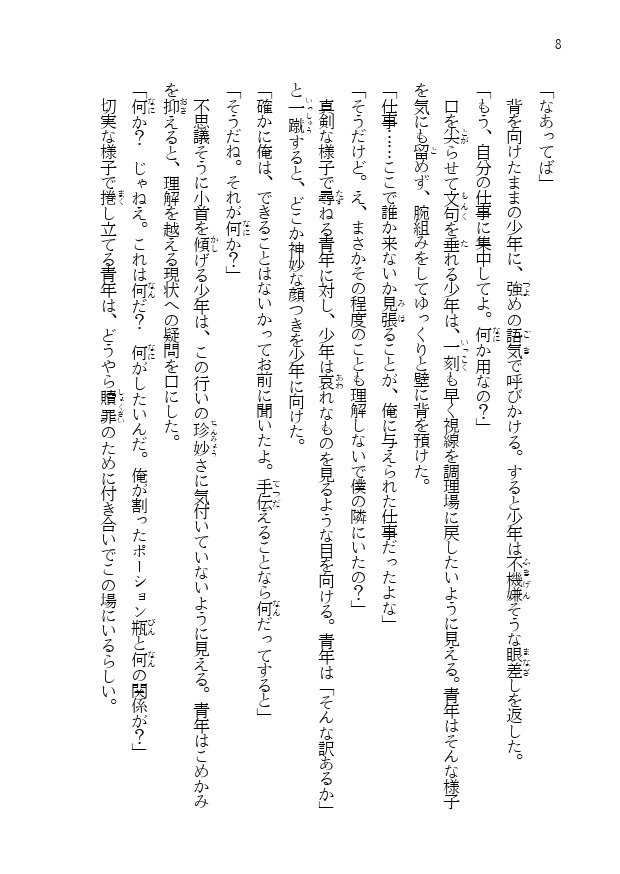 8
「なあってば」
背を向けたままの少年に、強めの語気で呼びかける。すると少年は不機嫌そうな眼差しを返した。
「もう、自分の仕事に集中してよ。何か用なの？」
口を尖らせて文句を垂れる少年は、一刻も早く視線を調理場に戻したいように見える。青年はそんな様子
を気にも留めず、腕組みをしてゆっくりと壁に背を預けた。
「仕事……ここで誰か来ないか見張ることが、俺に与えられた仕事だったよな」
「そうだけど。え、まさかその程度のことも理解しないで僕の隣にいたの？」
真剣な様子で尋ねる青年に対し、少年は哀れなものを見るような目を向ける。青年は「そんな訳あるか」
と一蹴すると、どこか神妙な顔つきを少年に向けた。
「確かに俺は、できることはないかってお前に聞いたよ。手伝えることなら何だってすると」
「そうだね。それが何か？」
不思議そうに小首を傾げる少年は、この行いの珍妙さに気付いていないように見える。青年はこめかみ
を抑えると、理解を越える現状への疑問を口にした。
「何か？　じゃねえ。これは何だ？　何がしたいんだ。俺が割ったポーション瓶と何の関係が？」
切実な様子で捲し立てる青年は、どうやら贖罪のために付き合いでこの場にいるらしい。